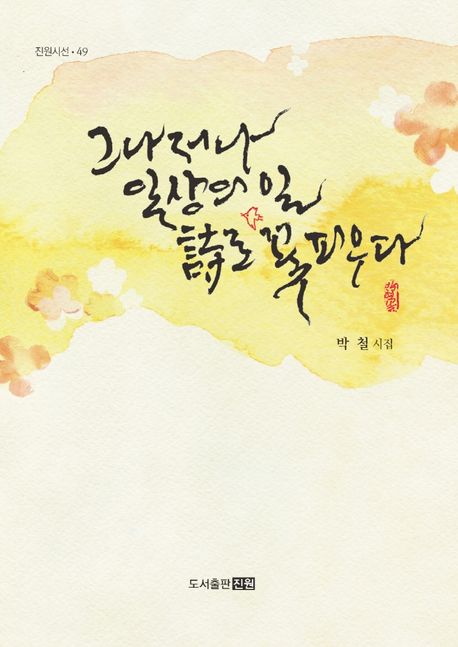 진원시선 • 49
그나저나
일상의 일
詩로 꽃피우다
박 철 시집
도서출판 진원